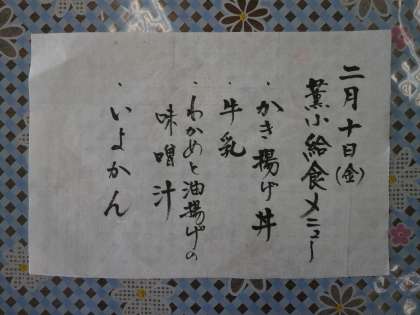 二月十日(金)
薫小給食メニュー
・かき揚げ丼
・牛乳
・わかめと油揚げの
味噌汁
・いよかん